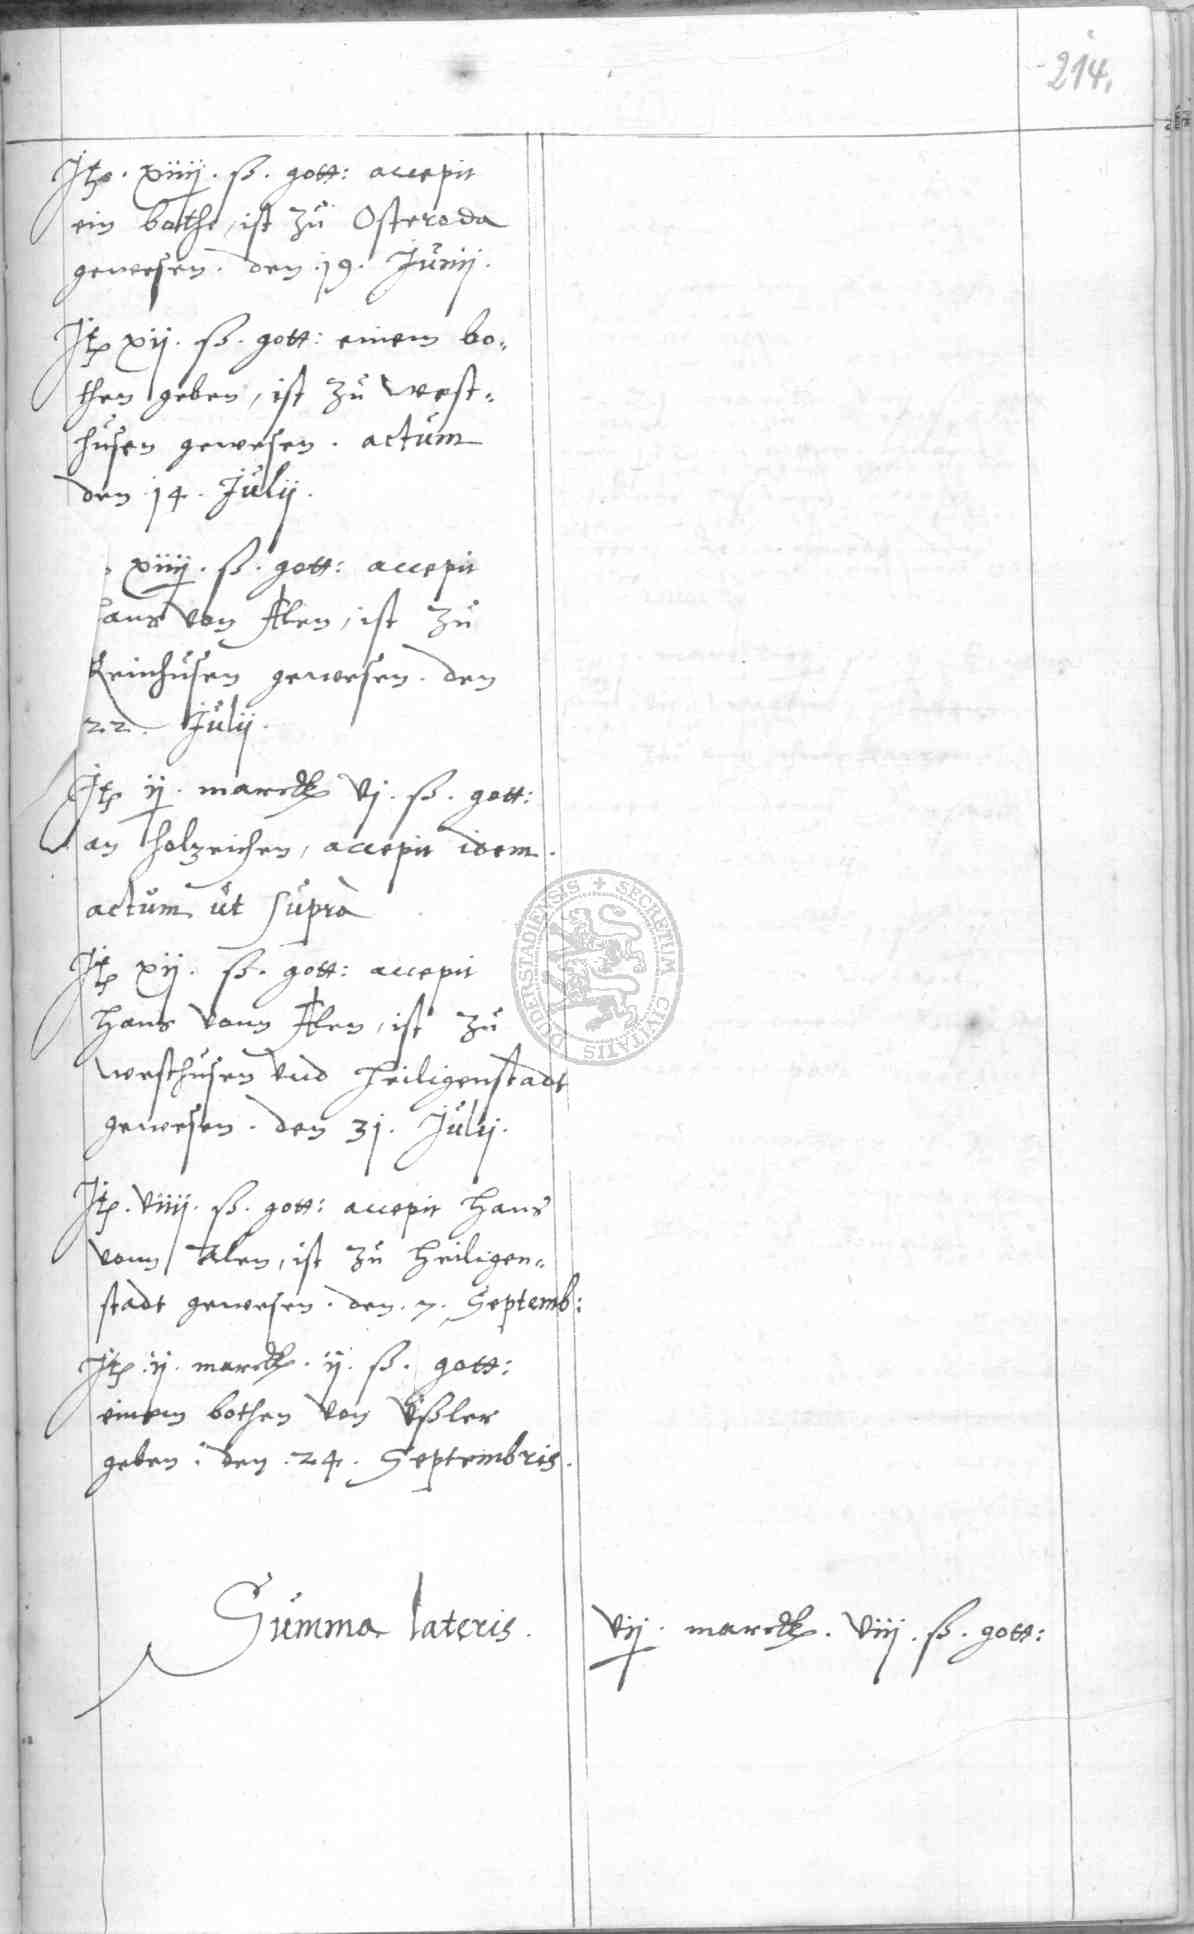 214.
Jtem. xiiij. ß. gott: accepit
ein bothe, ist zu Osteroda
gewesen. den .19. Junij.
Jtem xij. ß. gott: einem bo-
then geben, ist zu West-
husen gewesen. actum
den .14. Julij.
xiiij. ß. gott: accepit
Hans von Alen, ist zu
Reinhusen gewesen. den
22. Julij.
Jtem ij. marck vj. ß. gott:
an holzeichen, accepit idem.
actum ut supra
Jtem xij. ß. gott: accepit
Hans vonn Alen, ist zu
Westhusen vnd Heiligenstadt
gewesen. den 31. Julij.
Jtem. viiij. ß. gott: accepit Hans
vonn Alen, ist zu Heiligen-
stadt gewesen. den .7. Septemb:
Jtem .ij. marck. ij. ß. gott:
einem bothen von Vßler
geben: den .24. Septembris.
Summa lateris. vij. marck. viij. ß. gott:
DUDERSTADIENSIS + SECRETUM CIVITATIS